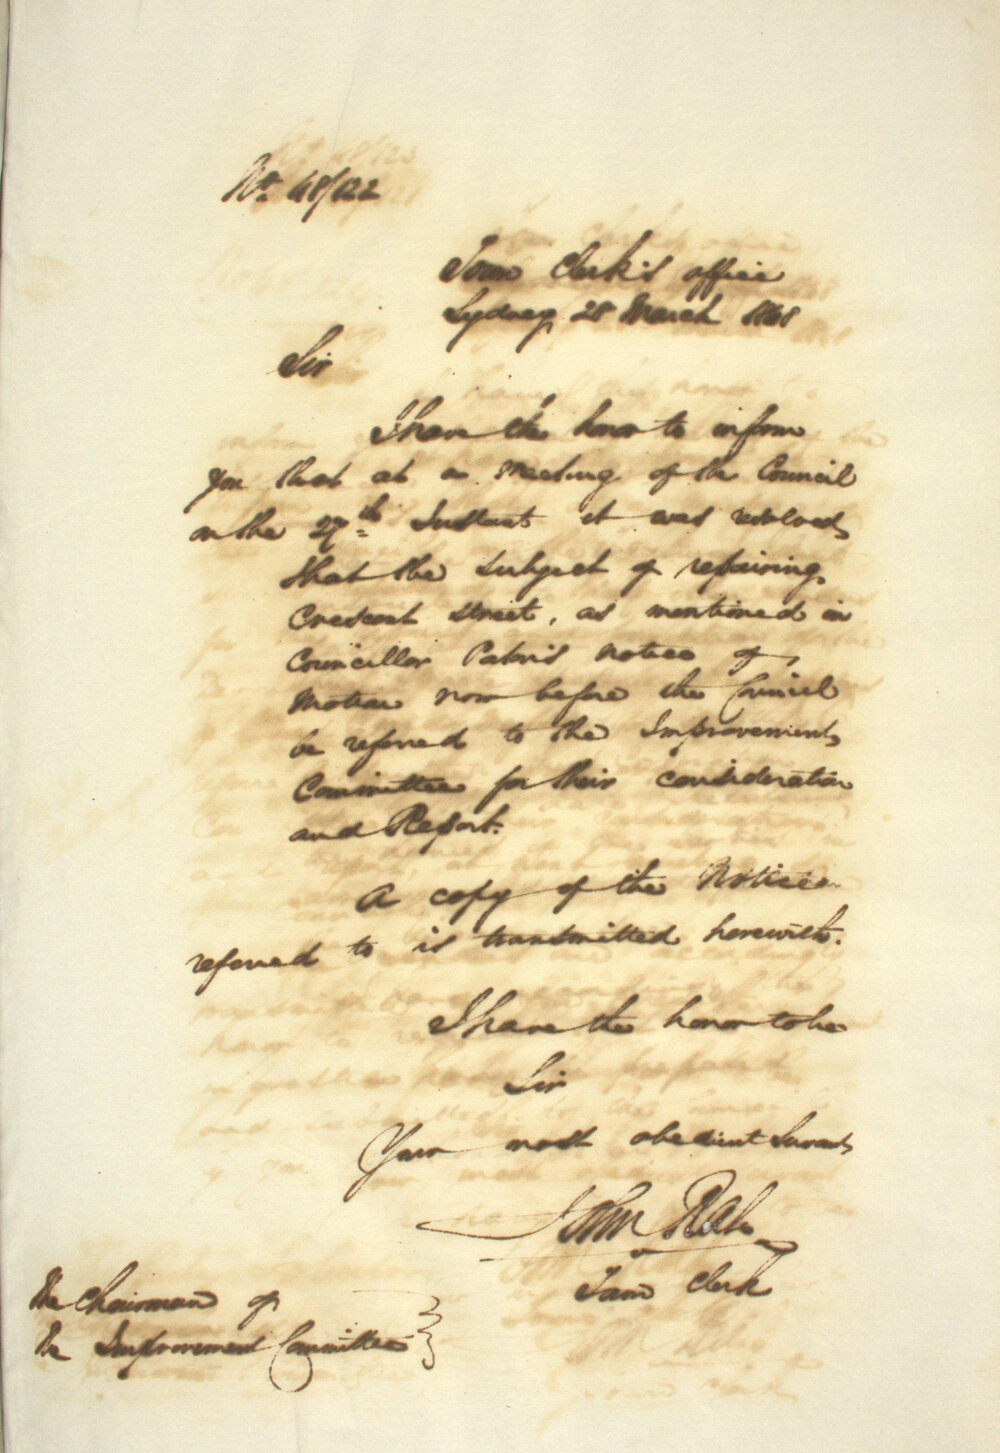 No. 48/122
Town Clerk's office
Sydney 28 March 1848
Sir
I have the honor to inform
you that at a Meeting of the Council
on the 27th Instant it was resolved
that the subject of repairing
Crescent Street, as mentioned in
Councillor notice of
Motion now before the Council
be referred to the Improvement
Committee for their consideration
and Report.
A copy of the Notice
referred to is transmitted herewith.
I have the honor to be
Sir
Your most obedient Servant
John
Town Clerk
The Chairman of
the Improvement Committee